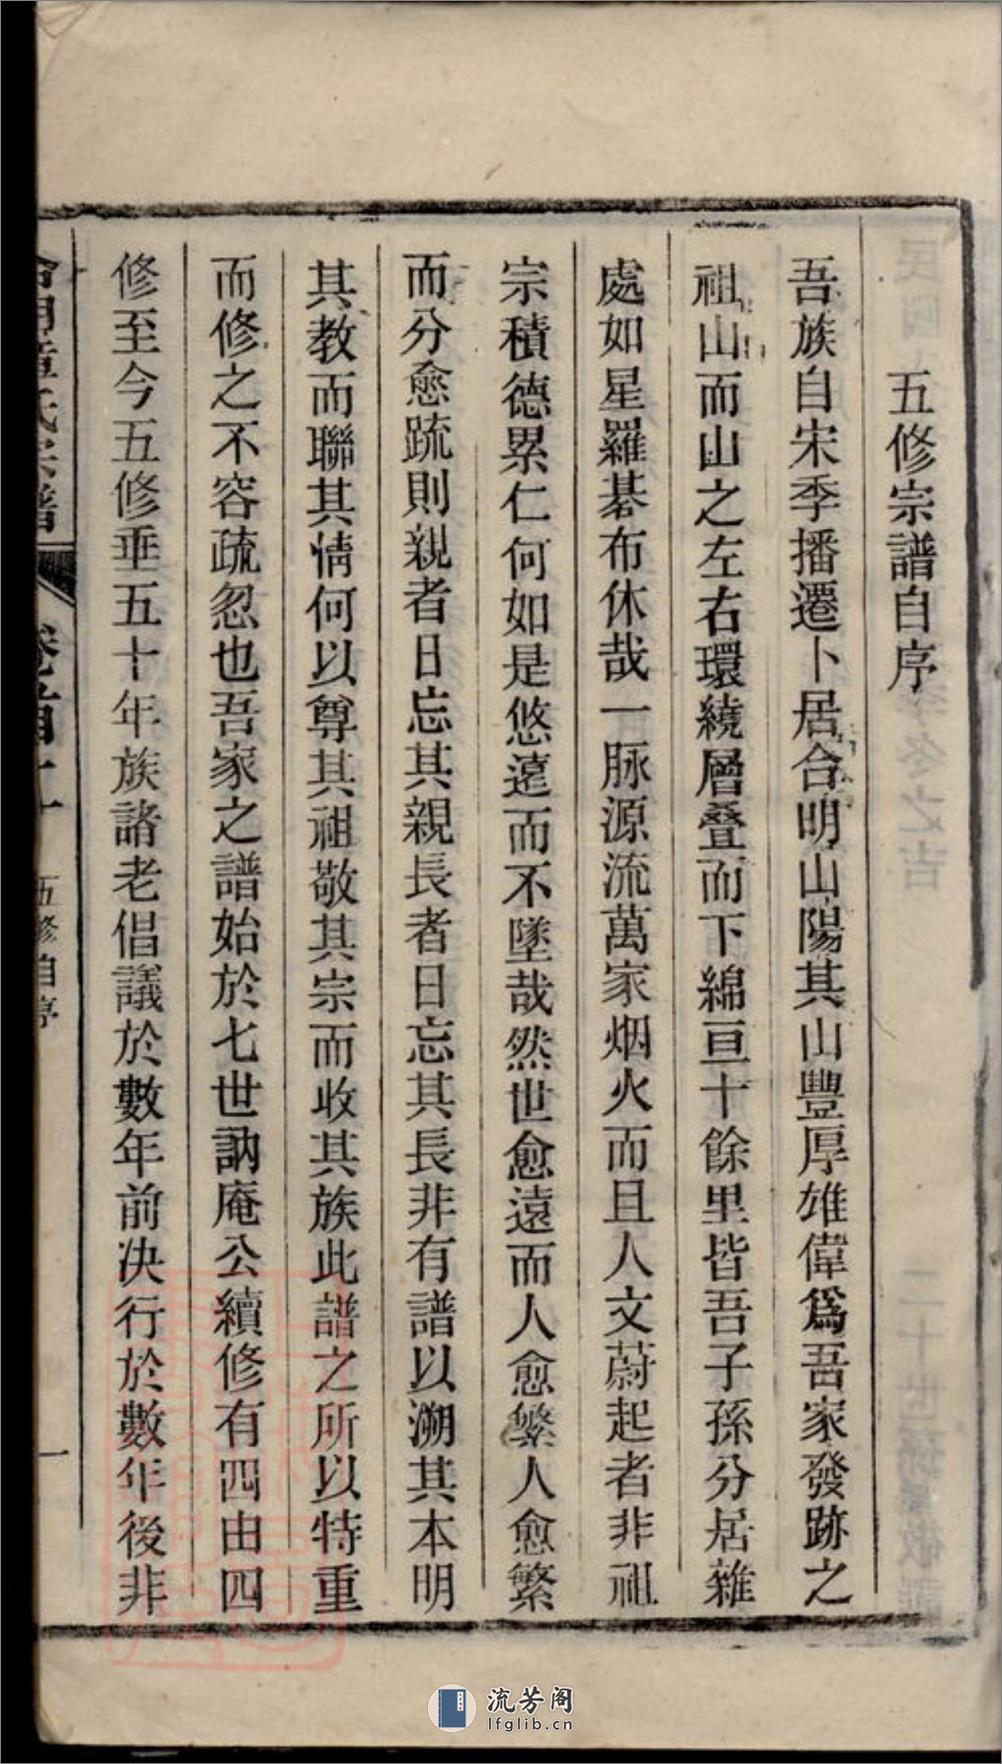 五修宗譜自序
吾族自宋季播遷卜居合明山陽其山豐厚雄偉爲吾家發跡之
祖山而山之左右環繞層叠而下綿亘十餘里皆吾子孫分居雜
處如星羅碁布休哉一脉源流萬家烟火而且人文蔚起者非祖
宗積德累仁何如是悠遠而不墜哉然世愈遠而人愈繁人愈繁
而分愈疏則親者日忘其親長者日忘其長非有譜以溯其本明
其教而聯其情何以尊其祖敬其宗而收其族此譜之所以特重
而修之不容疏忽也吾家之譜始於七世訥庵公續修有四由四
修至今五修垂五十年族諸老倡議於數年前决行於數年後非
合明童氏宗譜 卷首上 五修自序 一
流芳阁
lfglib.cn